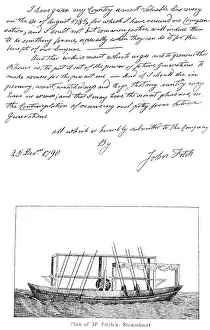 I have given my Country a most valuable discovery
on the of August 1785 for which I have received no Compen-
sation, and I shall not but common justice will induce them
to do something from, especially when they can do it for the
benefit of our Empire
And the instrument which urges me to press on this
is to put it out of the power of future Generations to
make excuse for the present one — and if I should die in
penury, want, wretchedness and Rags that my Country may
have no excuse and that I may have the secret pleasure, in
the Contemplation of receiving real pitty from future
Generations
all which is humbly submitted to the Company
By
John Fitch
1790
Plan of Mr Fitch's Steamboat